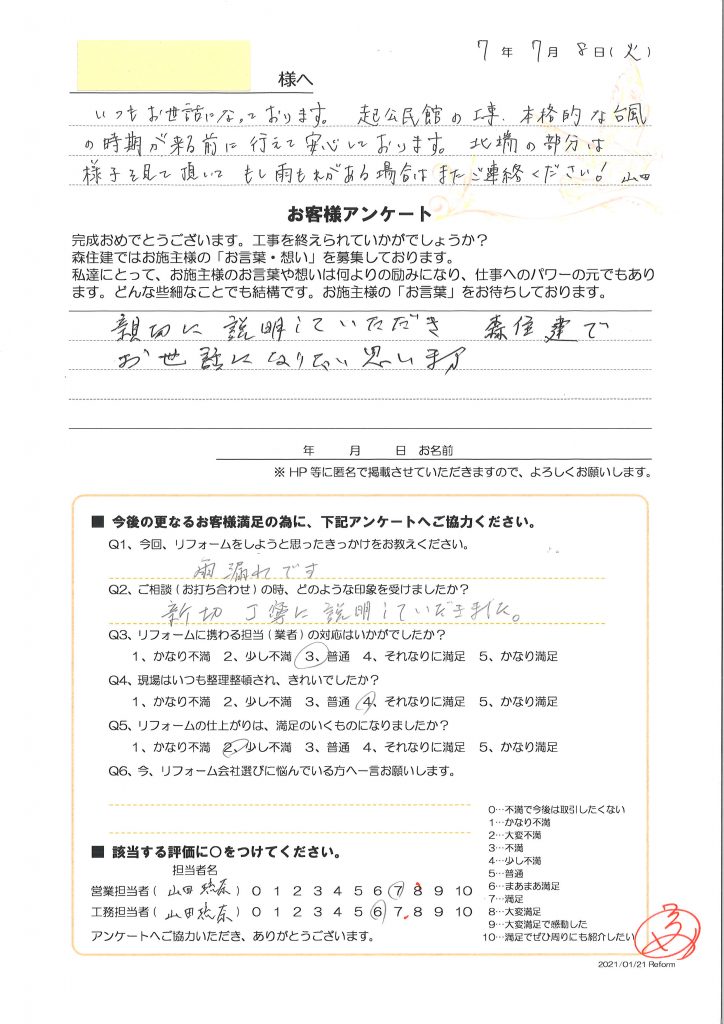 7年 7月 8日(火)
様へ
いつもお世話になっております。 起公民館の工事、本格的な台風
の時期が来る前に行えて安心しております。 北端の部分は
様子を見て頂いて もし雨もれがある場合はまたご連絡ください! 山田
お客様アンケート
完成おめでとうございます。工事を終えられていかがでしょうか?
森住建ではお施主様の「お言葉・想い」を募集しております。
私達にとって、お施主様のお言葉や想いは何よりの励みになり、仕事へのパワーの元でもあり
ます。どんな些細なことでも結構です。お施主様の「お言葉」をお待ちしております。
親切に説明していただき 森住建で
お世話になりたい思います
年 月 日 お名前
※HP等に匿名で掲載させていただきますので、よろしくお願いします。
■ 今後の更なるお客様満足の為に、下記アンケートへご協力ください。
Q1、今回、リフォームをしようと思ったきっかけをお教えください。
雨漏れです
Q2、ご相談(お打ち合わせ)の時、どのような印象を受けましたか?
新切 丁寧に説明していただきました。
Q3、リフォームに携わる担当(業者)の対応はいかがでしたか?
1、かなり不満 2、少し不満 3、普通 4、それなりに満足 5、かなり満足
Q4、現場はいつも整理整頓され、きれいでしたか?
1、かなり不満 2、少し不満 3、普通 4、それなりに満足 5、かなり満足
Q5、リフォームの仕上がりは、満足のいくものになりましたか?
1、かなり不満 2、少し不満 3、普通 4、それなりに満足 5、かなり満足
Q6、今、リフォーム会社選びに悩んでいる方へ一言お願いします。
■ 該当する評価に〇をつけてください。
担当者名
営業担当者( 山田 ) 0 1 2 3 4 5 6 7 8 9 10
工務担当者( 山田 ) 0 1 2 3 4 5 6 7 8 9 10
アンケートへご協力いただき、ありがとうございます。
0…不満で今後は取引したくない
1…かなり不満
2…大変不満
3…不満
4…少し不満
5…普通
6…まあまあ満足
7…満足
8…大変満足
9…大変満足で感動した
10…満足でぜひ周りにも紹介したい
2021/01/21 Reform